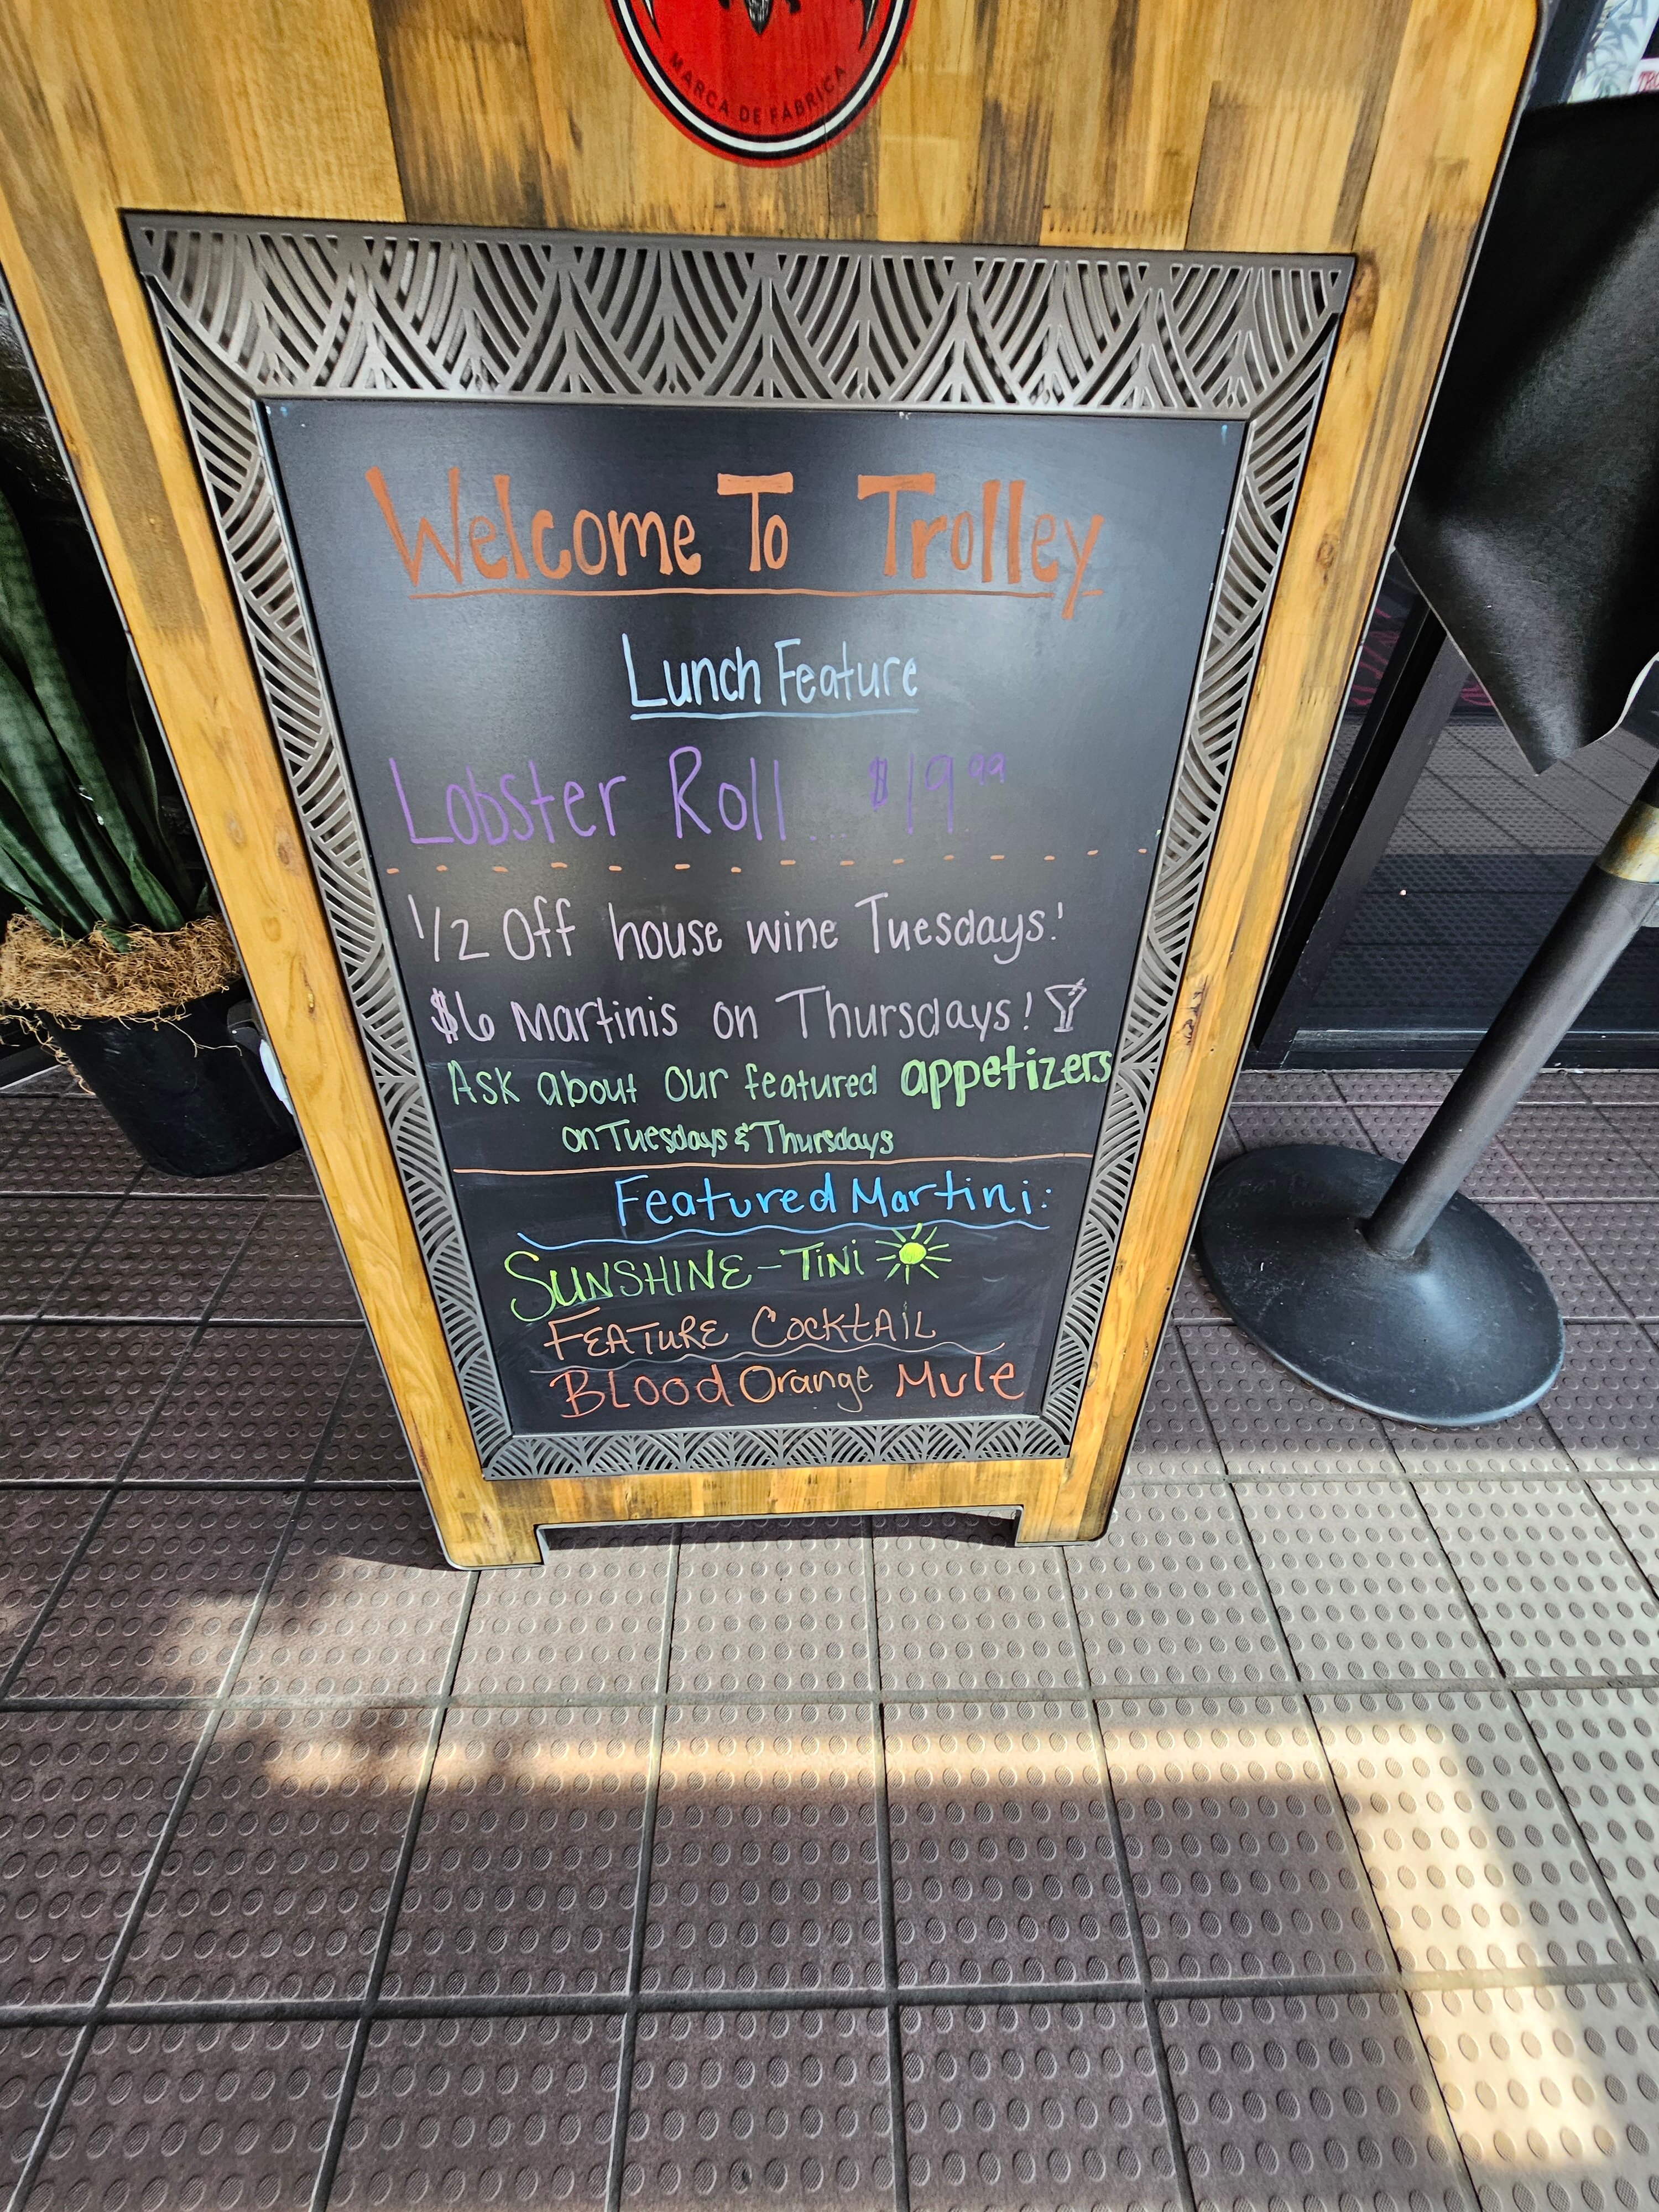 MARCA DE FÁBRICA
Welcome To Trolley
Lunch Feature
Lobster Roll... $19.99
1/2 Off house wine Tuesdays!
$6 Martinis on Thursdays!
Ask about our featured appetizers
on Tuesdays & Thursdays
Featured Martini:
SUNSHINE-TINI
FEATURE COCKTAIL
BLOOD Orange Mule